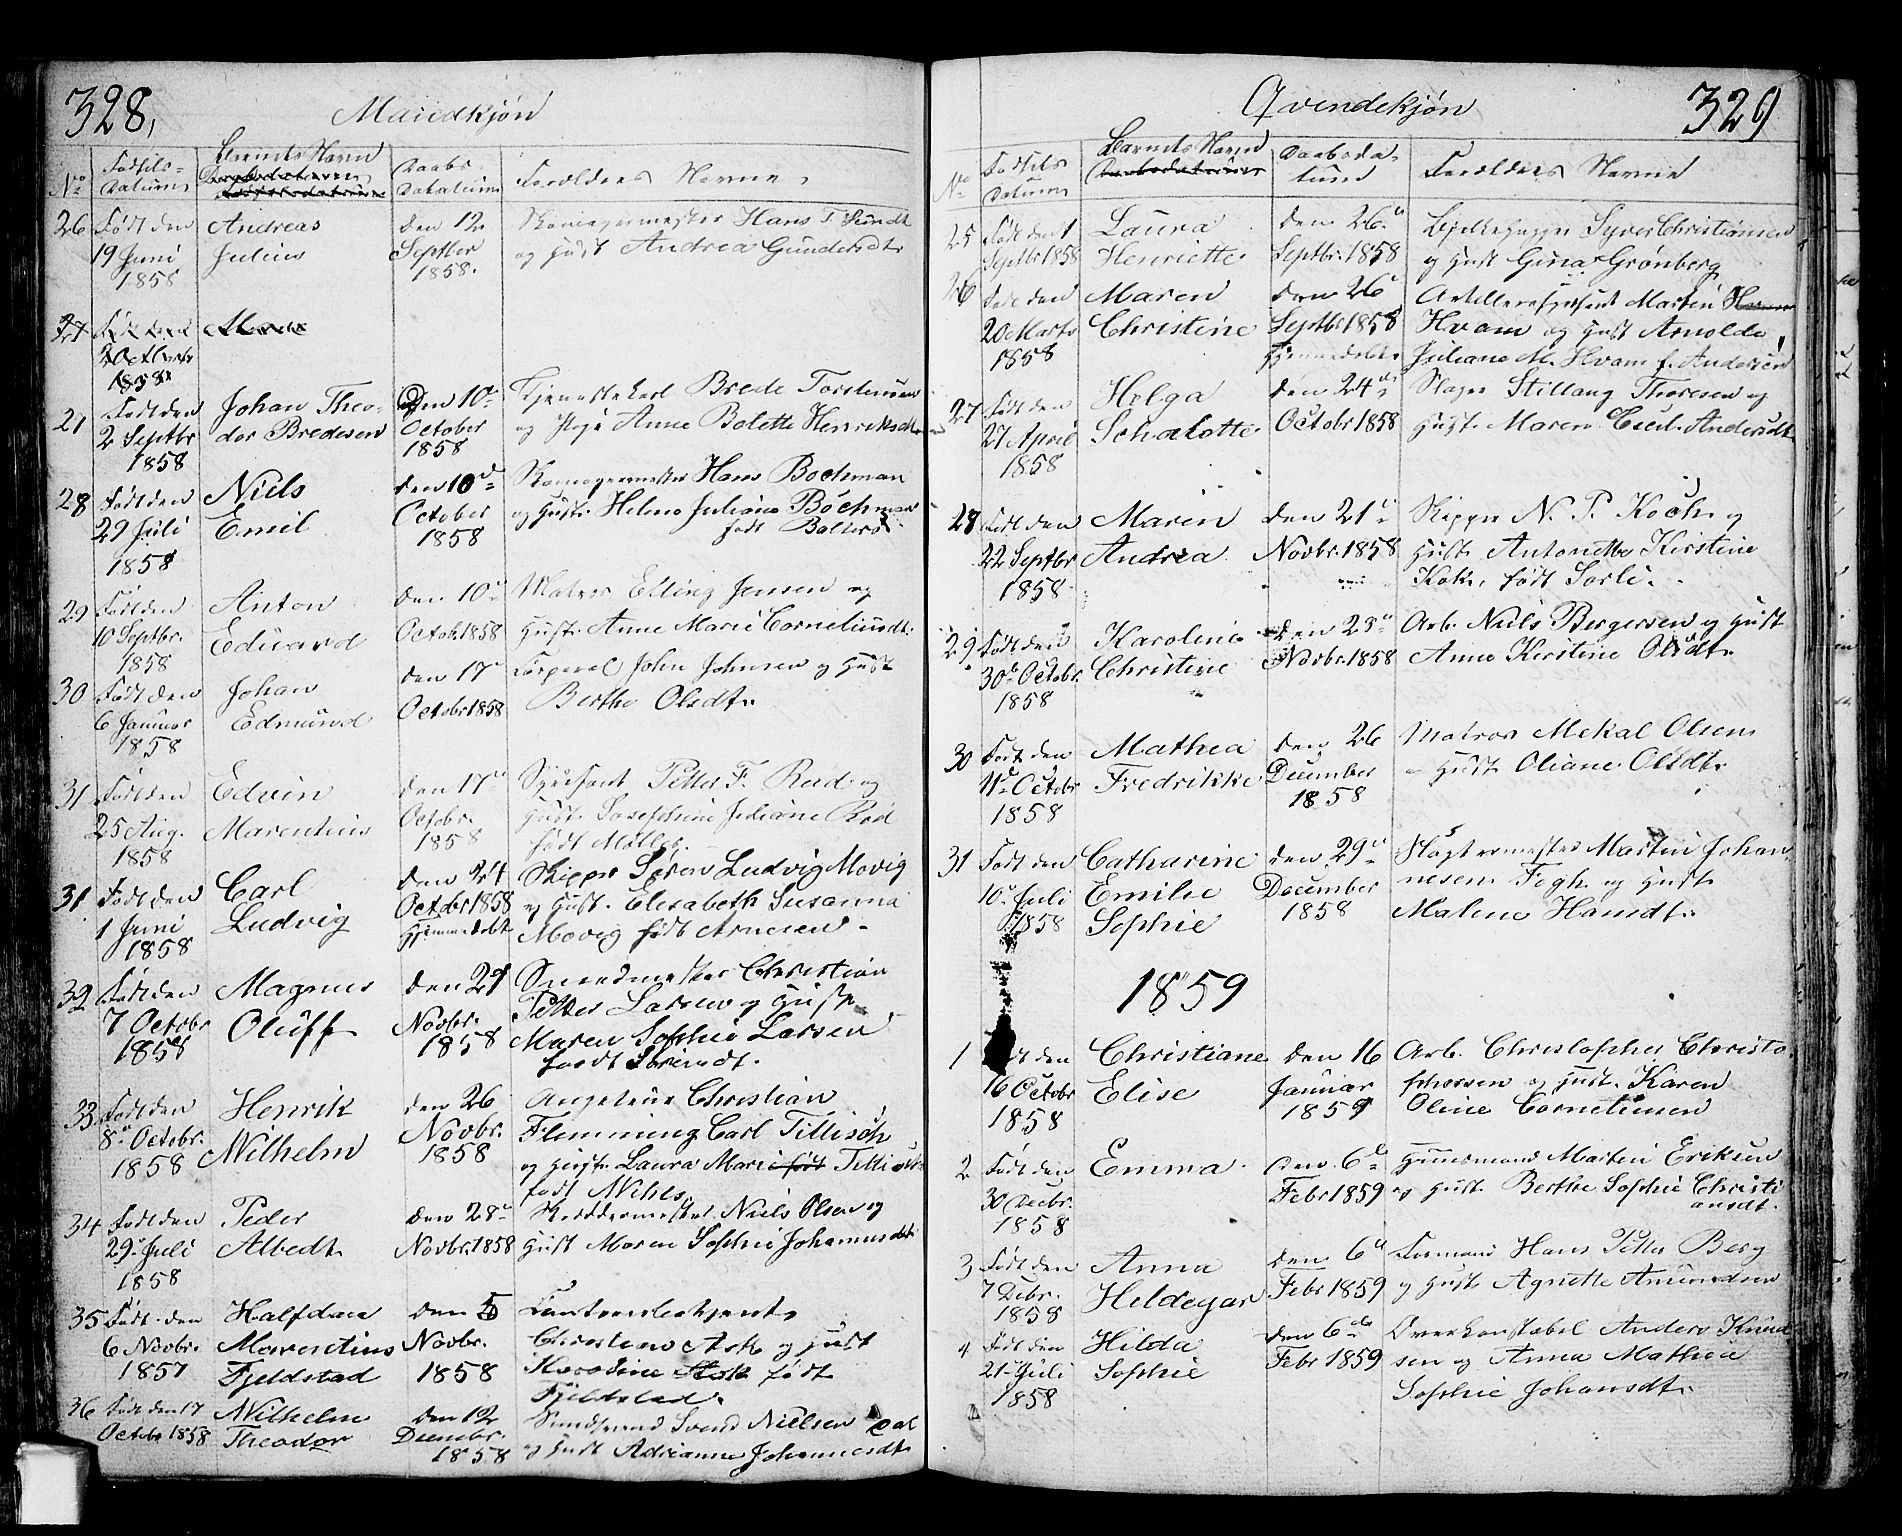 328,
Mandkjøn
No
Fødsels-
Datum
Barnets Navn
Daabs
Datum
Forældres Navne
26 Født den Andreas den 12 Skomagermester Hans T Sundt
19 Juni Julius Septber og Hust Andrea Gundersdtr
1858 1858.
27 Født den
20 Marts
1858
27 Født den Johan Theo- Den 10 Tjenestekarl Brede Torstensen
2 Septbr dor Bredesen October og Pige Anne Bolette Henriksdtr
1858 1858
28 Født den Niels den 10de Skomagermester Hans Bochman
29 Juli Emil October og Hustr. Helene Juliane Bochman
1858 1858 født Bolters
29 Født den Anton den 10 Matros Elling Jensen og
10 Septbr. Eduard Octob. 1858 Hustr. Anne Marie Corneliusdt.
1858
30 Født den Johan den 17 Corporal John Johnsen og Hust
6 Januar Edmund Octobr 1858 Berthe Olsdtr.
1858
31 Født den Edvin den 17 Petter F. Rød og
25 Aug. Marentius Octobr. Hustr. Josephine Juliane Rød
1858 1858 født Møller
31 Født den Carl den 24 Skipper Søren Ludvig Movig
1 Juni Ludvig Octobr 1858 og Hust. Elisabeth Susanna
1858 Hjemmedøbt Movig født Arnesen
32 Født den Magnus den 21 Smedmester Christian
7 Octobr Oluff Novbr. Petter Larsen og Hustr
1858 1858 Maren Sophie Larsen
født Sørensdt.
33 Født den Henrik den 26 Christian
8 Octobr. Wilhelm Novbr. Flemming Carl Tillisch
1858 1858 og Hustr. Laura Marie født Tillisch
født
34 Født den Peder den 28 Skræddermester Niels Olsen og
29 Juli Albedt Novbr. 1858 Hust Maren Sophie Johannesdt.
1858
35 Født den Halfdan den 5 Contoirbetjent
6 Novbr. Marentius Novbr. Christian Ask og Hust
1857 Fjeldstad 1858 Karoline Ask født
Fjeldstad.
36 Født den 17 Wilhelm den 12 Svend Nielsen Dal
Octobr 1858 Theodor Decembr. og Hust Adrianne Johannesdtr
1858
Qvendekjøn
329
No
Fødsels
Datum
Barnets Navn
Daabsda-
tum
Forældres Navne
25 Født den 1 Laura den 26 Syver Christiansen
Septbr 1858 Henriette Septbr. 1858 og Hust Gina Grønberg
26 Født den Maren den 26 Martin
20 Marts Christine Septbr 1858 Hvam og Hust Arnolde
1858 Hjemmedøbt Juliane M. Hvam f. Andersen
27 Født den Helga den 24de Stillaug Thoresen og
27 April Schalotte October 1858 Hust. Maren Cecil. Andersdt.
1858
28 Født den Maren den 21 Skipper N. P. Koch og
22 Septbr Andrea Novbr. 1858 Hust. Antonette Kirstine
1858 Kok, født Sorli.
29 Født den Karoline den 28 Arb. Niels Bergersen og Hust
30 Octobr. Christine Novbr. 1858 Anne Kirstine Olsdtr.
1858
30 Født den Mathea den 26 Matros Mekal Olsen
11 Octobr Fredrikke December og Hust. Oliane Olsdtr.
1858 1858
31 Født den Catharine den 29 Slagtermester Martin Johan-
10 Juli Emilie December nesen Fogh og Hustr
1858 Sophie 1858 Malene Hansdtr.
1859
1 Født den Christiane den 16 Arb. Christopher Christo-
16 Octobr Elise Januar phersen og Hust. Karen
1858 1859 Oline Corneliusen
2 Født den Emma den 6 Huusmand Martin Eriksen
30 Decbr. Febr 1859 og Hust. Berthe Sophie Christi
1858 ansdt.
3 Født den Anna den 6 Formand Hans Petter Berg
7 Decbr. Hildegar Febr 1859 og Hust. Agnette Amundsen
1858
4 Født den Hilda den 6de Overkonstabel Anders Knud
21 Juli Sophie Febr 1859 sen og Anna Mathea
1858 Sophie Johansdt.